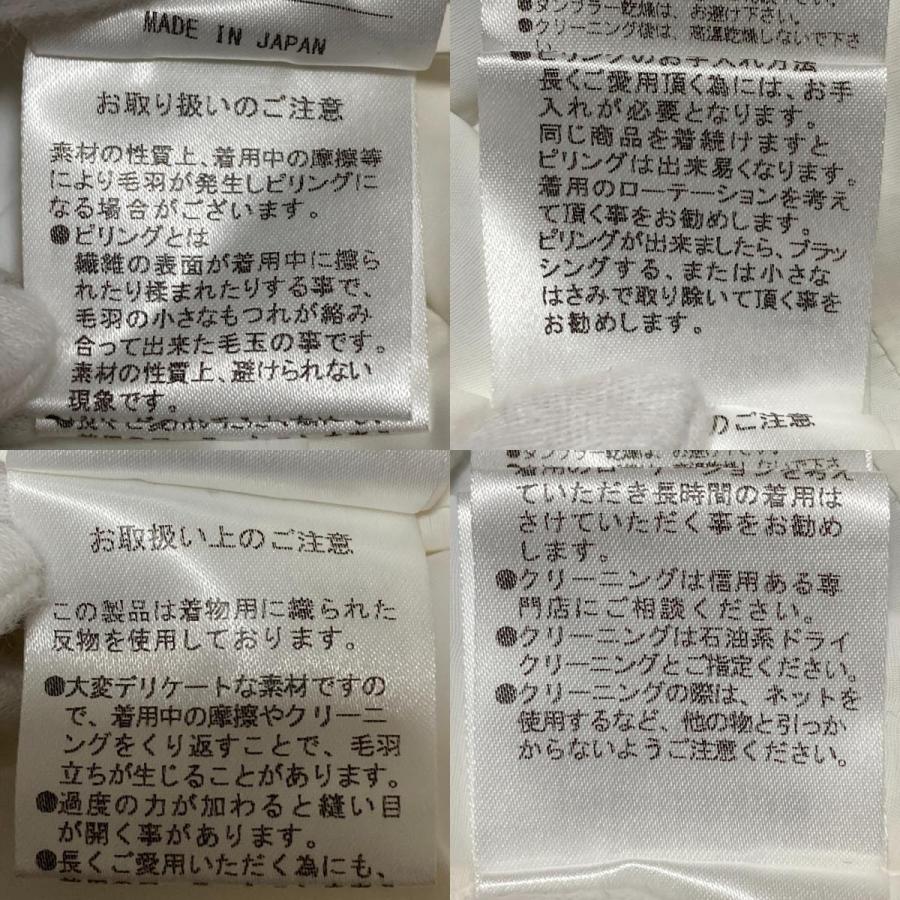 MADE IN JAPAN
お取り扱いのご注意
素材の性質上、着用中の摩擦等
により毛羽が発生しピリングに
なる場合がございます。
●ピリングとは
繊維の表面が着用中に擦ら
れたり揉まれたりする事で、
毛羽の小さなもつれが絡み
合って出来た毛玉の事です。
素材の性質上、避けられない
現象です。
●タンブラー乾燥は、お避け下さい。
●クリーニング後は、高温乾燥しないで下さ
い
●ピリングのお手入れ方法
長くご愛用頂く為には、お手
入れが必要となります。
同じ商品を着続けますと
ピリングは出来易くなります。
着用のローテーションを考え
て頂く事をお勧めします。
ピリングが出来ましたら、ブラッ
シングする、または小さな
はさみで取り除いて頂く事を
お勧めします。
のご注意
お取扱い上のご注意
この製品は着物用に織られた
反物を使用しております。
●大変デリケートな素材ですの
で、着用中の摩擦やクリーニ
ングをくり返すことで、毛羽
立ちが生じることがあります。
●過度の力が加わると縫い目
が開く事があります。
●長くご愛用いただく為にも、
着用のローテーションを考え
ていただき長時間の着用は
さけていただく事をお勧め
します。
●クリーニングは信用ある専
門店にご相談ください。
●クリーニングは石油系ドライ
クリーニングとご指定ください。
●クリーニングの際は、ネットを
使用するなど、他の物と引っか
からないようご注意ください。